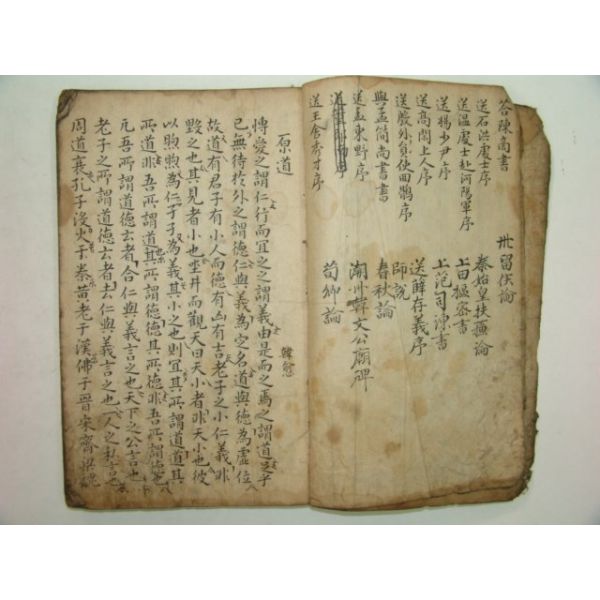 答陳商書
送石洪處士序
送溫處士赴河陽軍序
送楊少尹序
送高閑上人序
送殷外負使回鶻序
與孟簡尚書書
送孟東野序
送王含秀才序
卅留侯論
秦始皇扶蘇論
上田樞密書
上范司諫書
送薛存義序
師說
春秋論
潮州韓文公廟碑
荀卿論
原道 韓愈
博愛之謂仁行而宜之之謂義由是而之焉之謂道足乎
已無待於外之謂德仁與義為定名道與德為虛位
故道有君子有小人而德有凶有吉老子之小仁義非
毁之也其見者小也坐井而觀天曰天小者非天小也彼
以煦煦為仁孑孑為義其小之也則宜其所謂道道其
所道非吾所謂道其所謂德德其所德非吾所謂德也
凡吾所謂道德云者合仁與義言之也天下之公言也
老子之所謂道德云者去仁與義言之也一人之私言也
周道衰孔子沒火于秦黃老于漢佛于晉宋齊梁魏